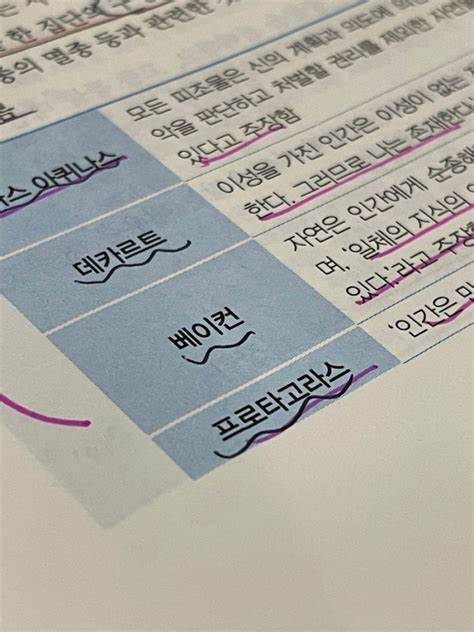 한 집단
종의 멸종 등과 관련한
모든 피조물은 신의 계획과 의도에
악을 판단하고 처벌할 권리를 제외한 자연
있다고 주장함
스 아퀴나스
이성을 가진 인간은 이성이 없는
한다. 그러므로 나는 존재한다
데카르트
자연은 인간에게 순종해
며, '일체의 지식의
있다.'라고 주장
베이컨
'인간은 만
프로타고라스